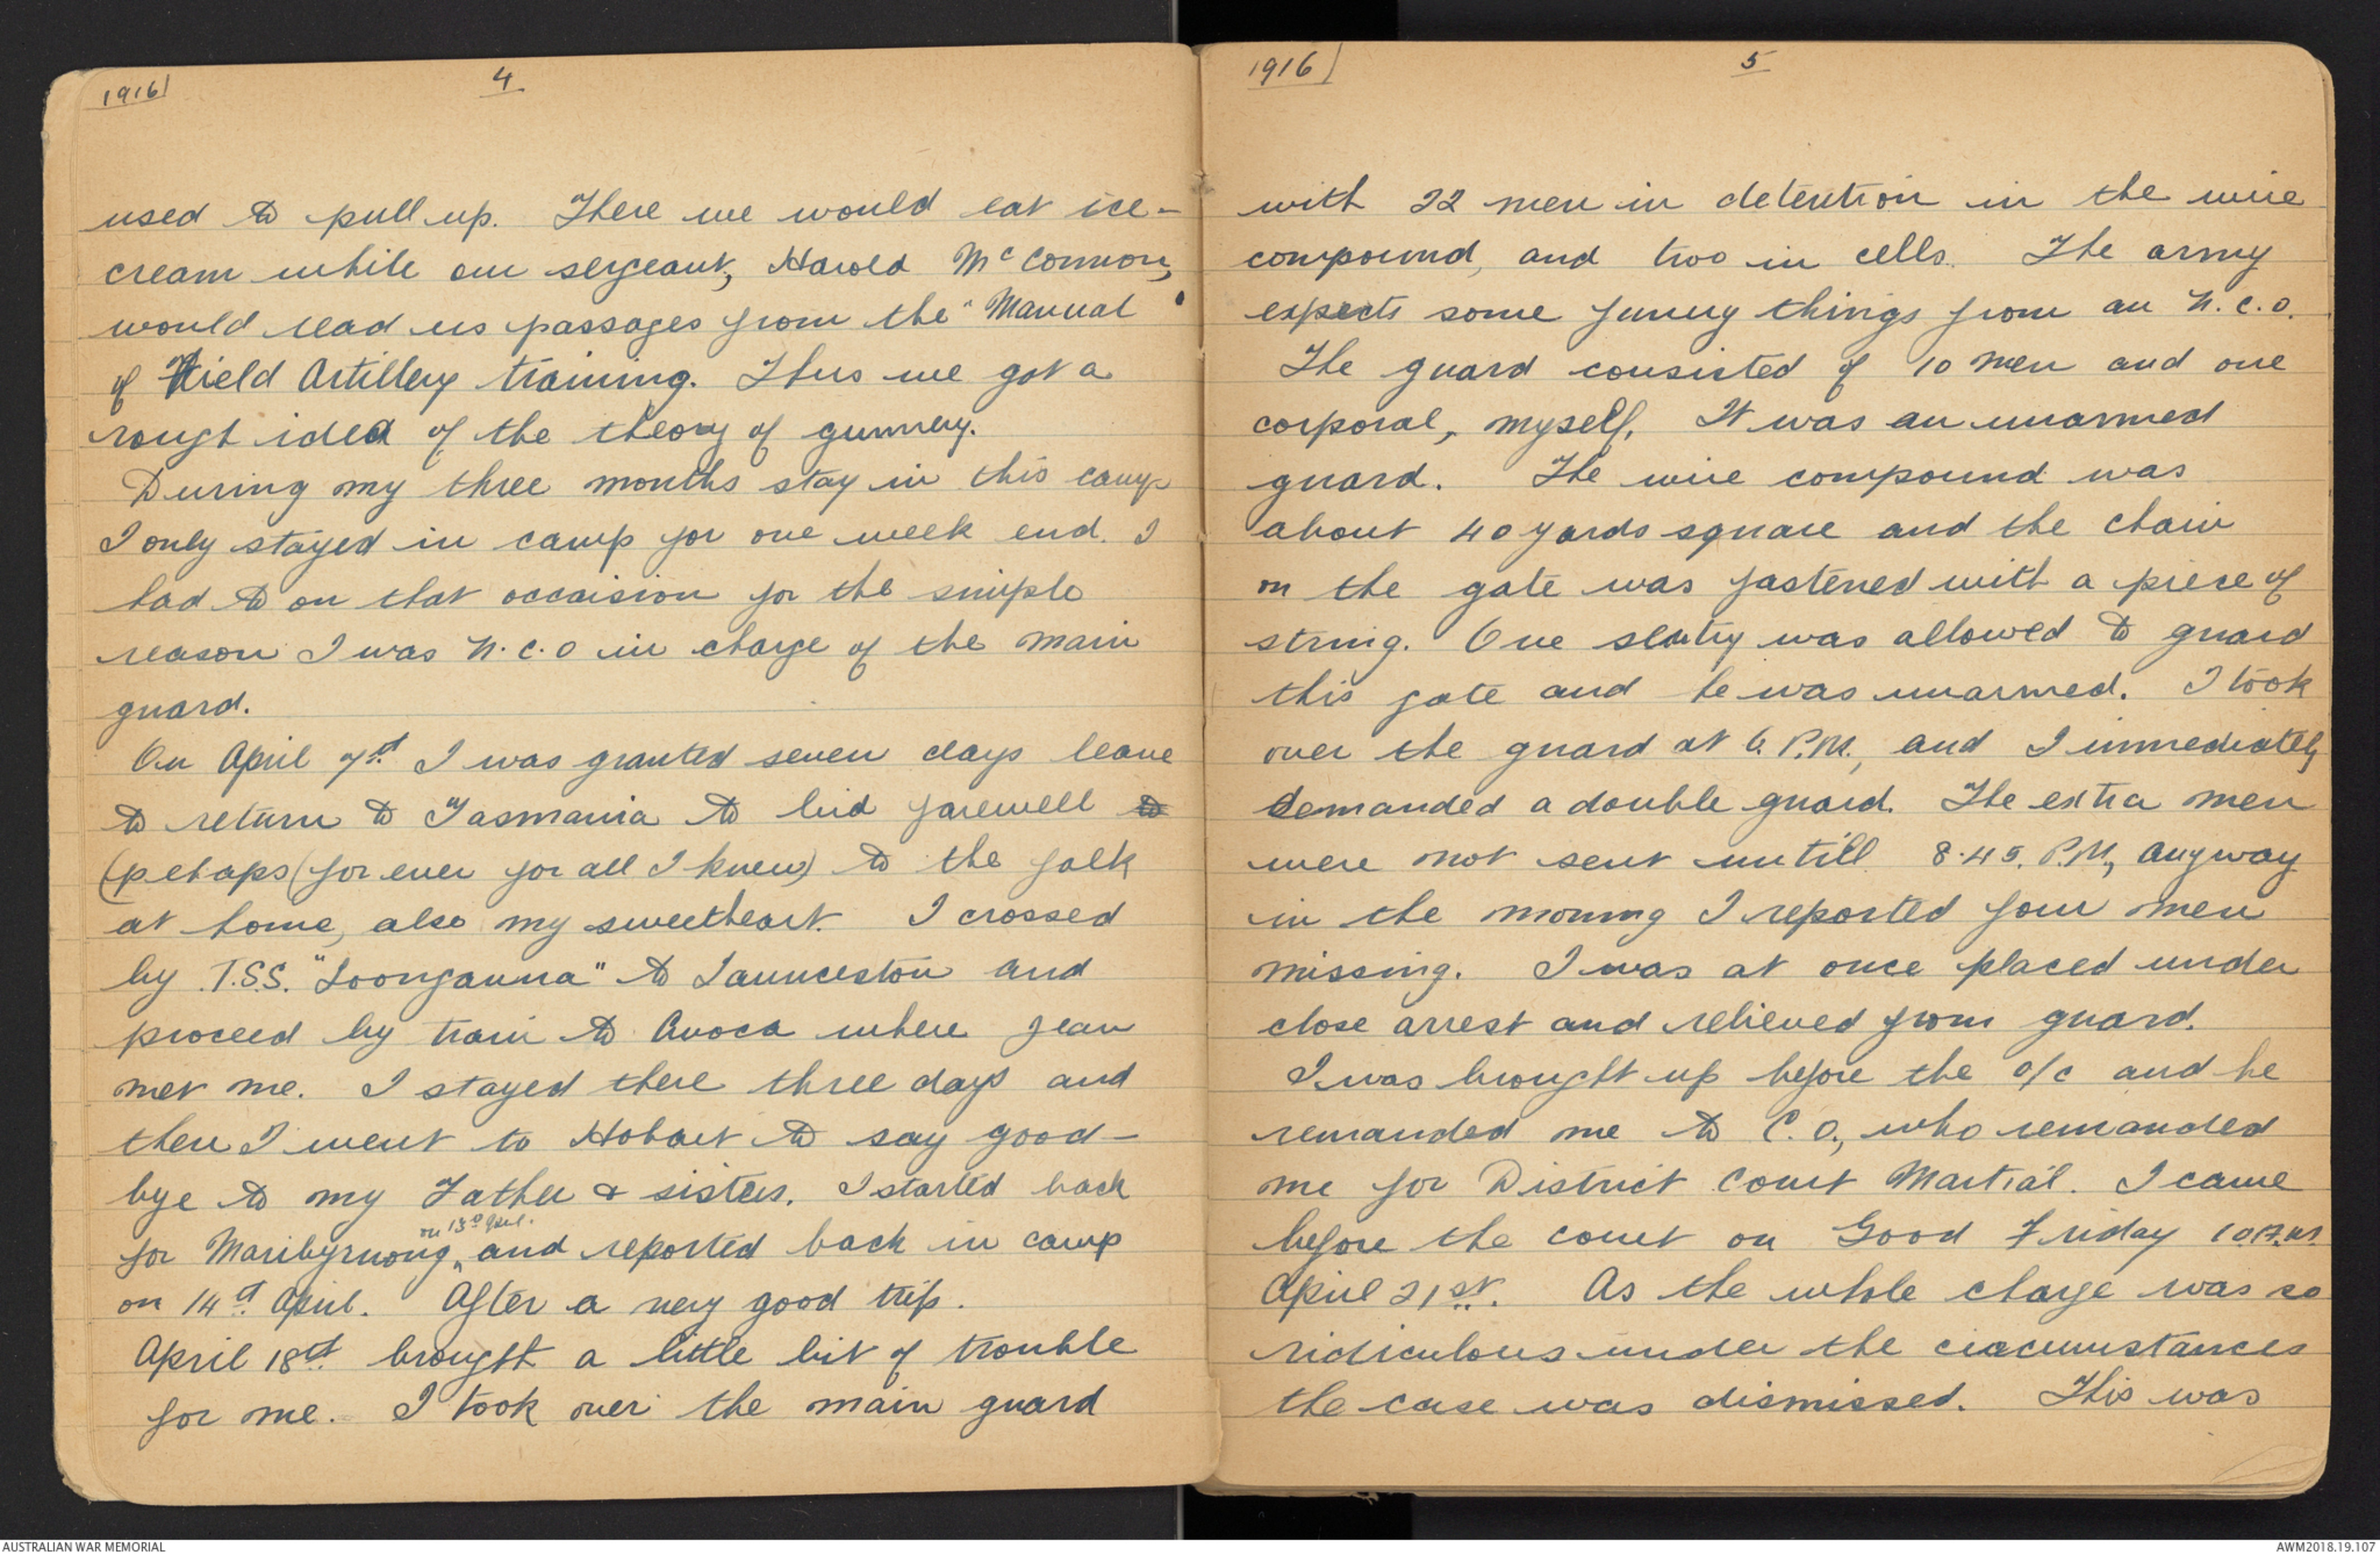 1916
4
used to pull up. There we would eat ice-
cream while our sergeant, Harold McConnon,
would read us passages from the "Manual
of Field Artillery training. Thus we got a
rough idea of the theory of gunnery.
During my three months stay in this camp
I only stayed in camp for one week end. I
had to on that occaision for the simple
reason I was N.C.O in charge of the main
guard.
On April 7th I was granted seven days leave
to return to Tasmania to bid farewell to
(pehaps (for ever for all I knew) to the folk
at home, also my sweetheart. I crossed
by T.S.S. "Loongana" to Launceston and
proceed by train to Avoca where Jean
met me. I stayed there three days and
then I went to Hobart to say good-
bye to my Father & sisters. I started back
on 13th April.
for Maribyrnong, and reported back in camp
on 14th April. After a very good trip.
April 18th brought a little bit of trouble
for me. I took over the main guard
1916
5
with 22 men in detention in the wire
compound, and two in cells. The army
expects some funny things from an N.C.O.
The guard consisted of 10 men and one
corporal, myself. It was an unarmed
guard. The wire compound was
about 40 yards square and the chain
on the gate was fastened with a piece of
string. One sentry was allowed to guard
this gate and he was unarmed. I took
over the guard at 6. P.M., and I immediately
demanded a double guard. The extra men
were not sent untill 8.45. P.M., anyway
in the morning I reported four men
missing. I was at once placed under
close arrest and relieved from guard.
I was brought up before the o/c and he
remanded me to C.O., who remanded
me for District Court Martial. I came
before the court on Good Friday 10 A.M.
April 21st. As the whole charge was so
ridiculous under the circumstances
the case was dismissed. This was
AUSTRALIAN WAR MEMORIAL
AWM2018.19.107